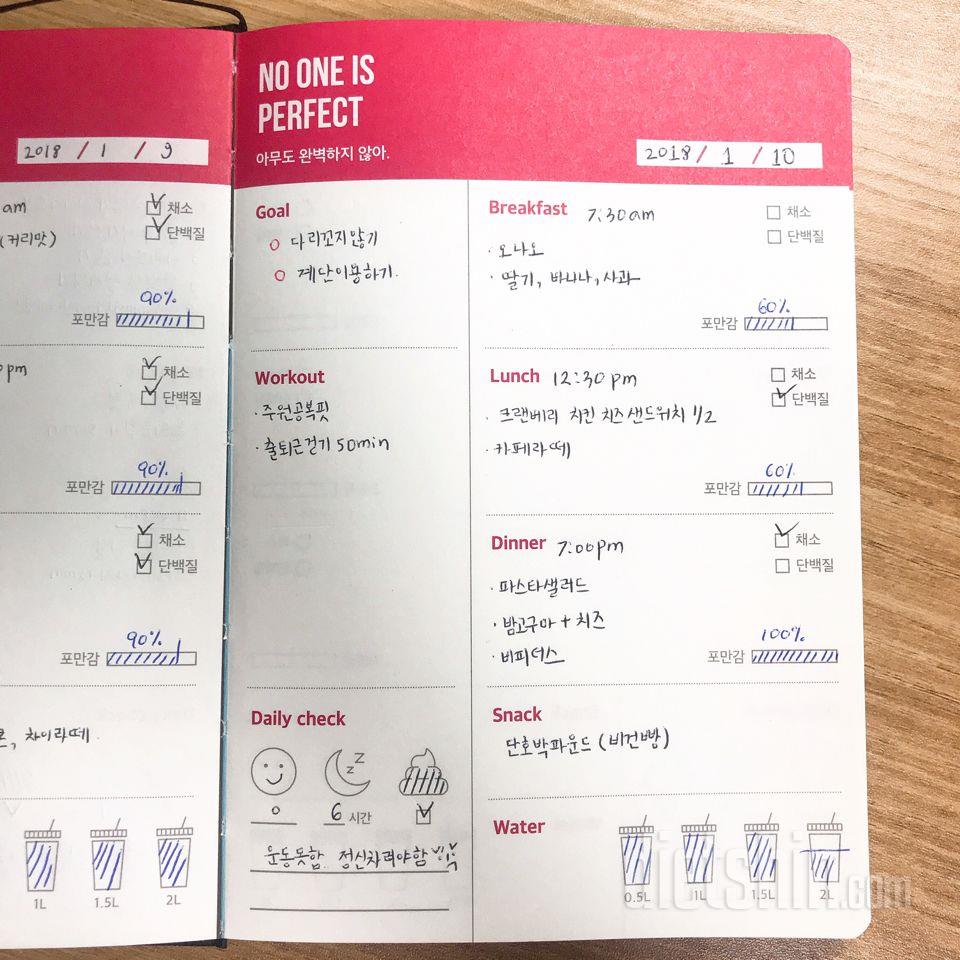 2018 / 1 / 9
am
채소
단백질
(커리맛)
90%
포만감
pm
채소
단백질
90%
포만감
채소
단백질
90%
포만감
, 차이라떼.
1L
1.5L
2L
NO ONE IS
PERFECT
아무도 완벽하지 않아.
2018 / 1 / 10
Goal
다리꼬지않기
계단이용하기.
Workout
· 주원공복핏
· 출퇴근걷기 50min
Daily check
zzz
o
6 시간
운동못함.. 정신차려야함
Breakfast 7:30am
채소
단백질
· 오나오
· 딸기, 바나나, 사과
60%
포만감
Lunch 12:30pm
채소
단백질
· 크랜베리 치킨 치즈샌드위치 1/2
· 카페라떼
60%
포만감
Dinner 7:00pm
채소
단백질
· 파스타샐러드
· 밤고구마 + 치즈
· 비피더스
100%
포만감
Snack
단호박파운드 (비건빵)
Water
0.5L
1L
1.5L
2L
dietshin.com